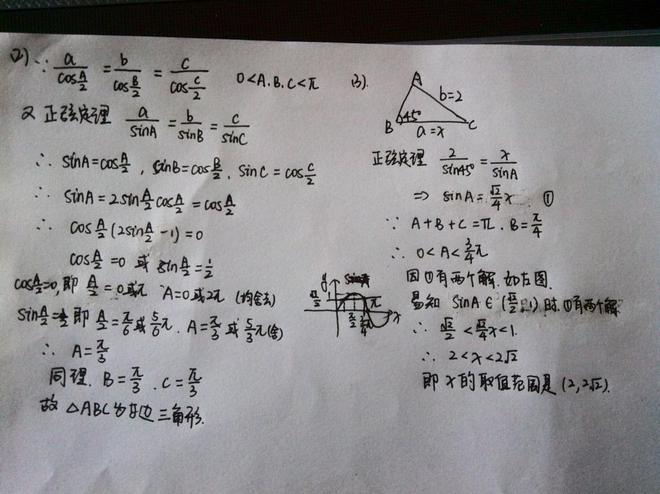 2) ∵ a/cos(A/2) = b/cos(B/2) = c/cos(C/2)  0<A.B.C<π
又正弦定理 a/sinA = b/sinB = c/sinC
∴ sinA=cos(A/2), sinB=cos(B/2), sinC=cos(C/2)
∴ sinA=2sin(A/2)cos(A/2)=cos(A/2)
∴ cos(A/2)(2sin(A/2)-1)=0
cos(A/2)=0 或 sin(A/2)=1/2
cos(A/2)=0, 即 A/2=0或π A=0或2π (均舍去)
sin(A/2)=1/2 即 A/2=π/6或5/6π. A=π/3或5/3π(舍)
∴ A=π/3
同理. B=π/3. C=π/3
故 △ABC为等边三角形.
(3).
A
b=2
B 45° C
a=x
正弦定理 2/sin45°=x/sinA
⇒ sinA=√2/4 x. ①
∵ A+B+C=π. B=π/4
∴ 0<A<3/4π
因①有两个解. 如左图.
易知 sinA∈(√2/2, 1)时. ①有两个解
∴ √2/2<√2/4x<1.
∴ 2<x<2√2
即 x的取值范围是(2, 2√2).
y
1
√2/2
π/2
3π/4
π
x